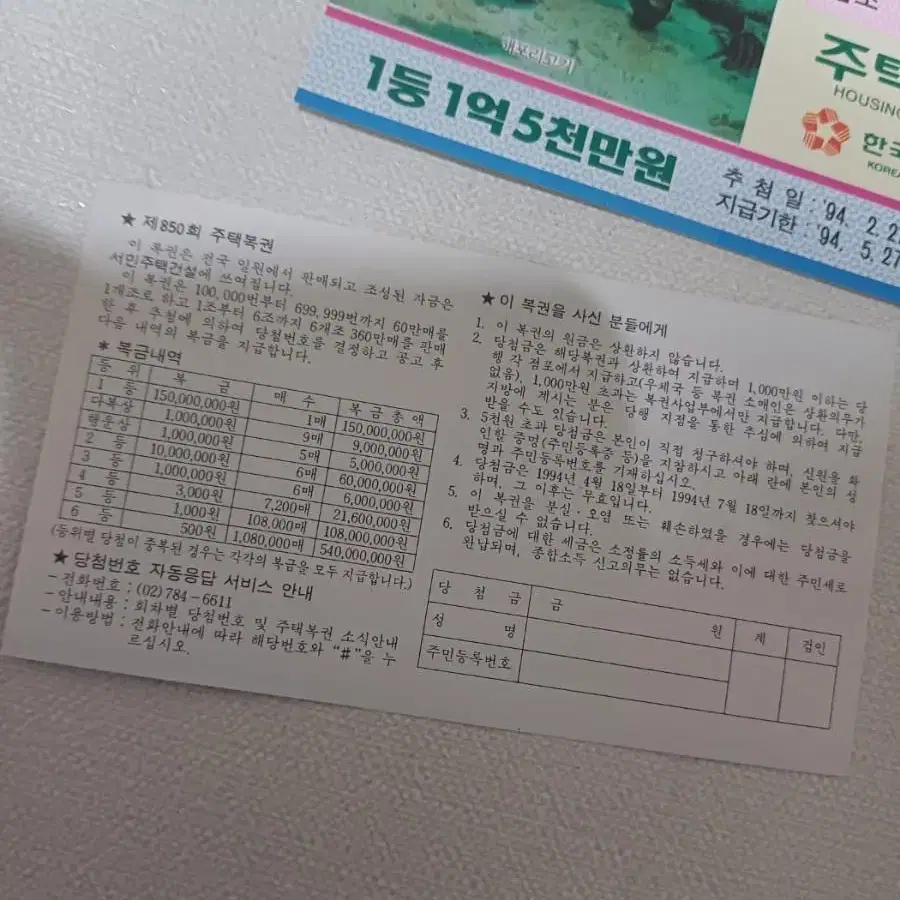 해포리고기
1등 1억 5천만원
주택
HOUSING
한국
KOREA
추 첨 일 : '94. 2. 2
지급기한 : '94. 5. 27
★ 제850회 주택복권
이 복권은 전국 일원에서 판매되고 조성된 자금은
서민주택건설에 쓰여집니다.
이 복권은 100,000번부터 699,999번까지 60만매를
1개조로 하고 1조부터 6조까지 6개조 360만매를 판매
한 후 추첨에 의하여 당첨번호를 결정하고 공고 후
다음 내역의 복금을 지급합니다.
★ 복금내역
등 위 복 금 매 수 복금총액
1 등 150,000,000원 1매 150,000,000원
다복상 1,000,000원 9매 9,000,000원
행운상 1,000,000원 5매 5,000,000원
2 등 10,000,000원 6매 60,000,000원
3 등 1,000,000원 6매 6,000,000원
4 등 3,000원 7,200매 21,600,000원
5 등 1,000원 108,000매 108,000,000원
6 등 500원 1,080,000매 540,000,000원
(등위별 당첨이 중복된 경우는 각각의 복금을 모두 지급합니다.)
★ 당첨번호 자동응답 서비스 안내
- 전화번호 : (02) 784-6611
- 안내내용 : 회차별 당첨번호 및 주택복권 소식안내
- 이용방법 : 전화안내에 따라 해당번호와 "#"을 누
르십시오.
★ 이 복권을 사신 분들에게
1. 이 복권의 원금은 상환하지 않습니다.
2. 당첨금은 해당복권과 상환하여 지급하며 1,000만원 이하는 당
행 각 점포에서 지급하고(우체국 등 복권 소매인은 상환의무가
없음), 1,000만원 초과는 복권사업부에서만 지급합니다. 다만,
지방에 계시는 분은 당행 지점을 통한 추심에 의하여 지급
받을 수도 있습니다.
3. 5천원 초과 당첨금은 본인이 직접 청구하셔야 하며, 신원을 확
인할 증명(주민등록증 등)을 지참하시고 아래 란에 본인의 성
명과 주민등록번호를 기재하십시오.
4. 당첨금은 1994년 4월 18일부터 1994년 7월 18일까지 찾으셔야
하며, 그 이후는 무효입니다.
5. 이 복권을 분실·오염 또는 훼손하였을 경우에는 당첨금을
받으실 수 없습니다.
6. 당첨금에 대한 세금은 소정률의 소득세와 이에 대한 주민세로
완납되며, 종합소득 신고의무는 없습니다.
당 첨 금 금 원 계 검인
성 명
주민등록번호